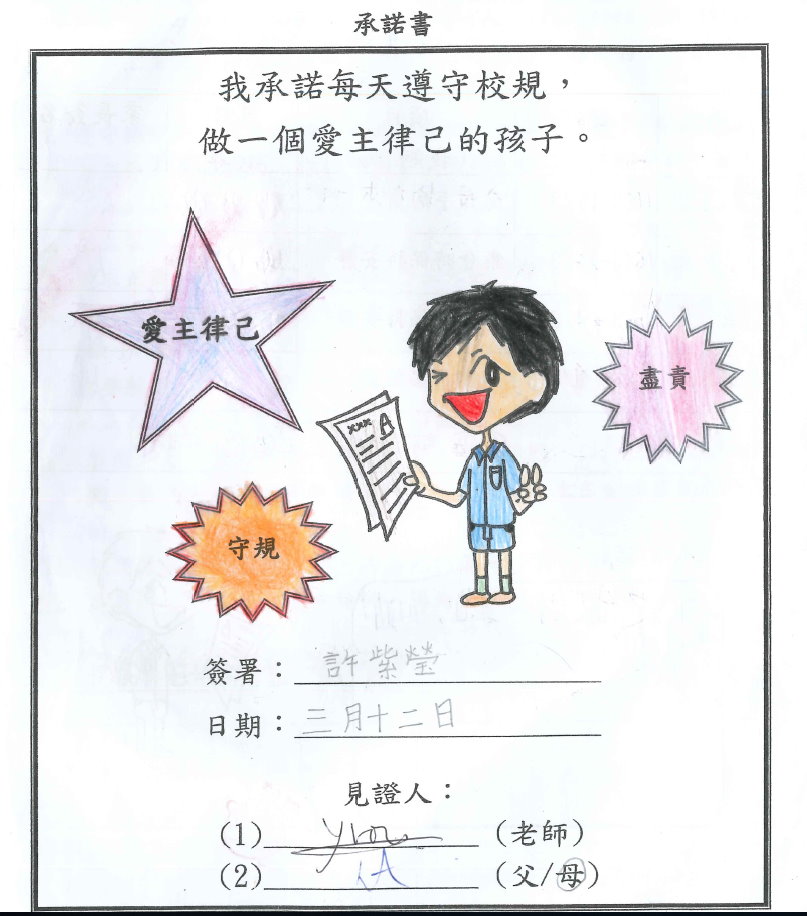 承諾書
我承諾每天遵守校規，
做一個愛主律己的孩子。
愛主律己
盡責
xxx A
守規
簽署：許紫瑩
日期：三月十二日
見證人：
(1) （老師）
(2) （父/母）